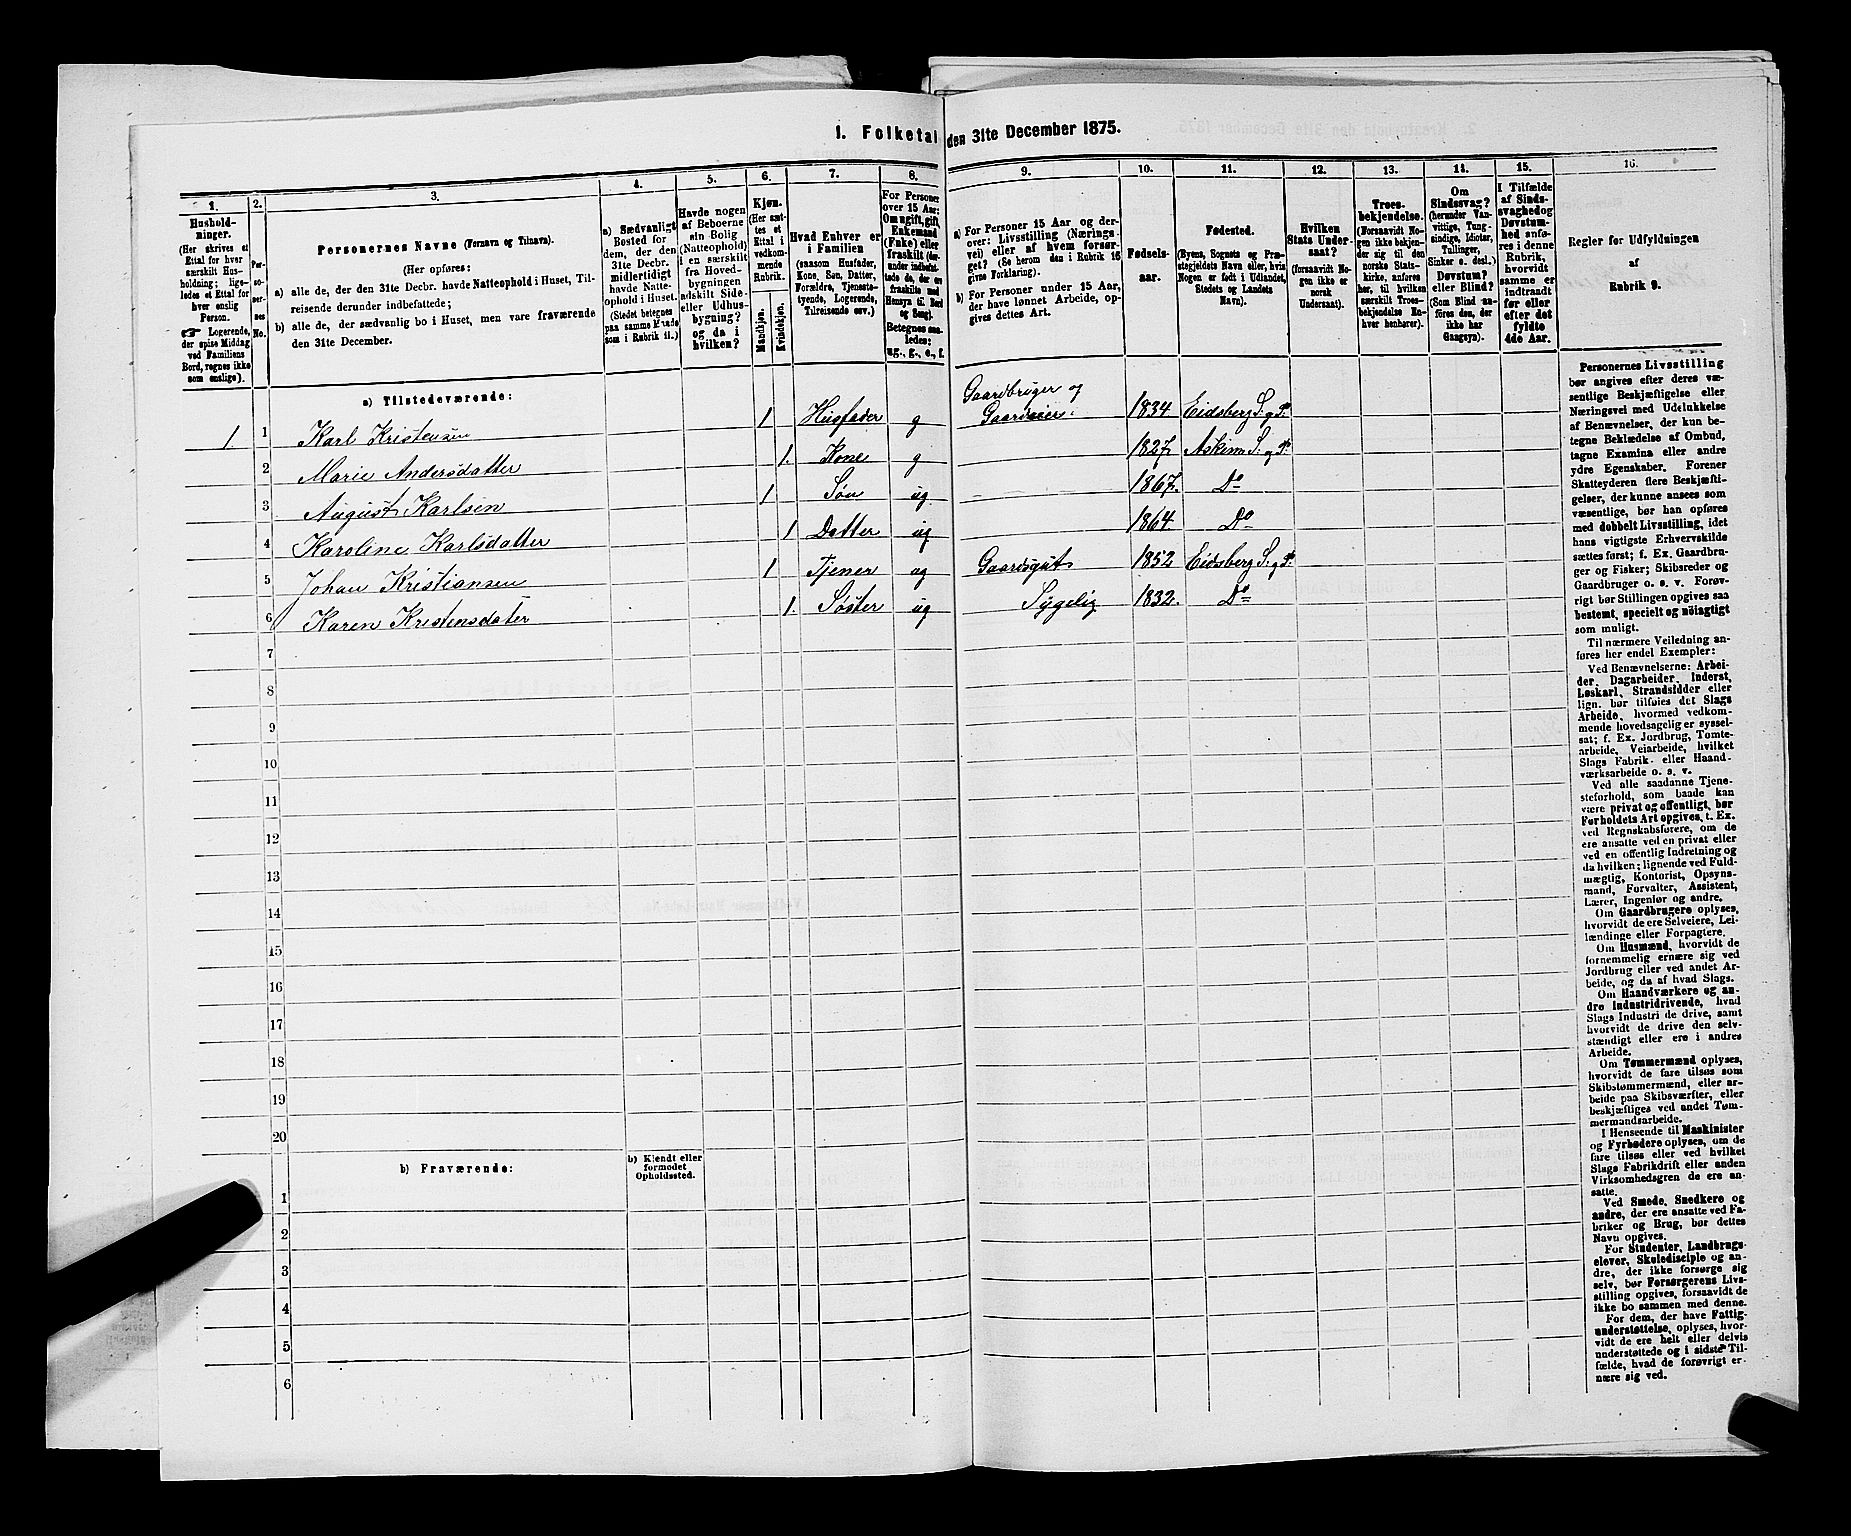 1. Folketal den 31te December 1875.
1. 2. 3. 4. 5. 6. 7. 8. 9. 10. 11. 12. 13. 14. 15. 16.
Hushold-
ninger.
(Her skrives et
Ettal for hver
særskilt Hus-
holdning; lige-
ledes et Ettal for
hver enslig
Person.
☛ Logerende,
der spise Middag
ved Familiens
Bord, regnes ikke
som enslige).
Per-
so-
ner-
nes
No.
Personernes Navne (Fornavn og Tilnavn).
(Her opføres:
a) alle de, der den 31te Decbr. havde Natteophold i Huset, Til-
reisende derunder indbefattede;
b) alle de, der sædvanlig bo i Huset, men vare fraværende
den 31te December.
a) Sædvanligt
Bosted for
dem, der den
31te Decbr.
midlertidigt
havde Natte-
ophold i Huset.
(Stedet betegnes
paa samme Maade
som i Rubrik 11.)
Havde nogen
af Beboerne
sin Bolig
(Natteophold)
i en særskilt
fra Hoved-
bygningen
adskilt Side-
eller Udhus-
bygning?
og da i
hvilken?
Kjøn.
(Her sæt-
tes et
Ettal i
vedkom-
mende
Rubrik.
Mandkjøn.
Kvindekjøn.
Hvad Enhver er
i Familien
(saasom Husfader,
Kone, Søn, Datter,
Forældre, Tjeneste-
tyende, Logerende,
Tilreisende osv.)
For Personer
over 15 Aar:
Om ugift, gift,
Enkemand
(Enke) eller
fraskilt (der-
under indbefat-
tede de, der ere
fraskilte med
Hensyn til Bord
og Seng).
Betegnes saa-
ledes:
ug., g., e., f.
a) For Personer 15 Aar og der-
over: Livsstilling (Nærings-
vei) eller af hvem forsør-
get? (Se herom den i Rubrik 16
givne Forklaring).
b) For Personer under 15 Aar,
der have lønnet Arbeide, op-
gives dettes Art.
Fødsels-
aar.
Fødested.
(Byens, Sognets og Præ-
stegjeldets Navn eller, hvis
Nogen er født i Udlandet,
Stedets og Landets
Navn).
Hvilken
Stats Under-
saat?
(forsaavidt No-
gen ikke er
norsk
Undersaat).
Troes-
bekjendelse.
(Forsaavidt
Nogen ikke bekjen-
der sig til den
norske Stats-
kirke, anføres
her, til hvilken
særskilt Troes-
bekjendelse En-
hver henhører).
Om
Sindssvag?
(herunder Van-
vittige, Tung-
sindige, Idioter,
Tullinger,
Sinker o. desl.)
Døvstum?
eller Blind?
(Som Blind an-
føres den, der
ikke har
Gangsyn).
I Tilfælde
af Sinds-
svaghed og
Døvstum-
hed anfø-
res i denne
Rubrik,
hvorvidt
samme er
indtraadt
før eller
efter det
fyldte
4de Aar.
Regler for Udfyldningen
af
Rubrik 9.
a) Tilstedeværende:
1 1 Karl Kristensen 1 Husfader g Gaardbruger og Gaardeier. 1834 Eidsberg S. og P.
2 Marie Andersdatter 1. Kone g 1827. Askim S. og P.
3 August Karlsen 1 Søn ug. 1867. Do
4 Karoline Karlsdatter 1 Datter ug 1864. Do
5 Johan Kristiansen 1 Tjener ug Gaardsgut 1852 Eidsberg S. og P.
6 Karen Kristensdater 1. Søster ug Sygelig 1832. Do
7
8
9
10
11
12
13
14
15
16
17
18
19
20
b) Fraværende:
b) Kjendt eller
formodet
Opholdssted.
1
2
3
4
5
6
Personernes Livsstilling
bør angives efter deres væ-
sentlige Beskjæftigelse eller
Næringsvei med Udelukkelse
af Benævnelser, der kun be-
tegne Beklædelse af Ombud,
tagne Examina eller andre
ydre Egenskaber. Forener
Skatteyderen flere Beskjæfti-
gelser, der kunne ansees som
væsentlige, bør han opføres
med dobbelt Livsstilling, idet
hans vigtigste Erhvervskilde
sættes først; f. Ex. Gaardbru-
ger og Fisker; Skibsreder og
Gaardbruger o. s. v. Forøv-
rigt bør Stillingen opgives saa
bestemt, specielt og nöiagtigt
som muligt.
Til nærmere Veiledning an-
føres her endel Exempler:
Ved Benævnelserne: Arbei-
der, Dagarbeider, Inderst,
Løskarl, Strandsidder eller
lign. bør tilføies det Slags
Arbeide, hvormed vedkom-
mende hovedsagelig er syssel-
sat; f. Ex. Jordbrug, Tomte-
arbeide, Veiarbeide, hvilket
Slags Fabrik- eller Haand-
værksarbeide o. s. v.
Ved alle saadanne Tjene-
steforhold, som baade kan
være privat og offentligt, bør
Forholdets Art opgives, t. Ex.
ved Regnskabsførere, om de
ere ansatte ved en privat eller
ved en offentlig Indretning og
da hvilken; lignende ved Fuld-
mægtig, Kontorist, Opsyns-
mand, Forvalter, Assistent,
Lærer, Ingeniør og andre.
Om Gaardbrugere oplyses,
hvorvidt de ere Selveiere, Lei-
lændinge eller Forpagtere.
Om Husmænd, hvorvidt de
fornemmelig ernære sig ved
Jordbrug eller ved andet Ar-
beide, og da af hvad Slags.
Om Haandværkere og an-
dre Industridrivende, hvad
Slags Industri de drive, samt
hvorvidt de drive den selv-
stændigt eller ere i andres
Arbeide.
Om Tømmermænd oplyses,
hvorvidt de fare tilsøs som
Skibstømmermænd, eller ar-
beide paa Skibsværfter, eller
beskjæftiges ved andet Tøm-
mermandsarbeide.
I Henseende til Maskinister
og Fyrbødere oplyses, om de
fare tilsøs eller ved hvilket
Slags Fabrikdrift eller anden
Virksomhedsgren de ere an-
satte.
Ved Smede, Snedkere og
andre, der ere ansatte ved Fa-
briker og Brug, bør dettes
Navn opgives.
For Studenter, Landbrugs-
elever, Skoledisciple og an-
dre, der ikke forsørge sig
selv, bør Forsørgerens Livs-
stilling opgives, forsaavidt de
ikke bo sammen med denne.
For dem, der have Fattig-
understøttelse, oplyses, hvor-
vidt de ere helt eller delvis
understøttede og i sidste Til-
fælde, hvad de forøvrigt er-
nære sig ved.